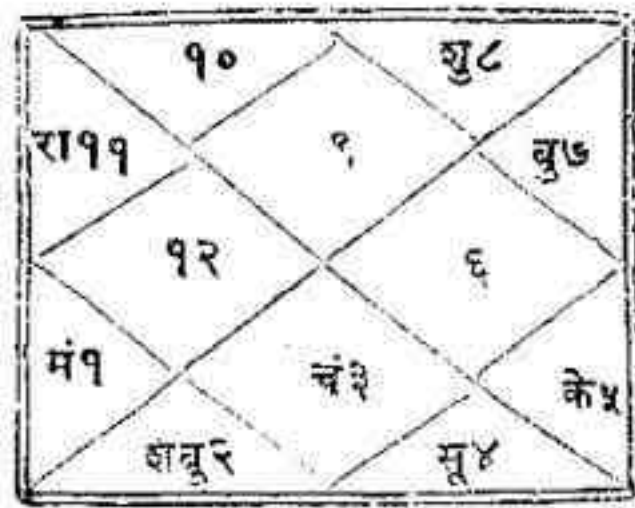 १० शु८
रा११ ९ बु७
१२ ६
मं१ चं३ के५
शबु२ सू४